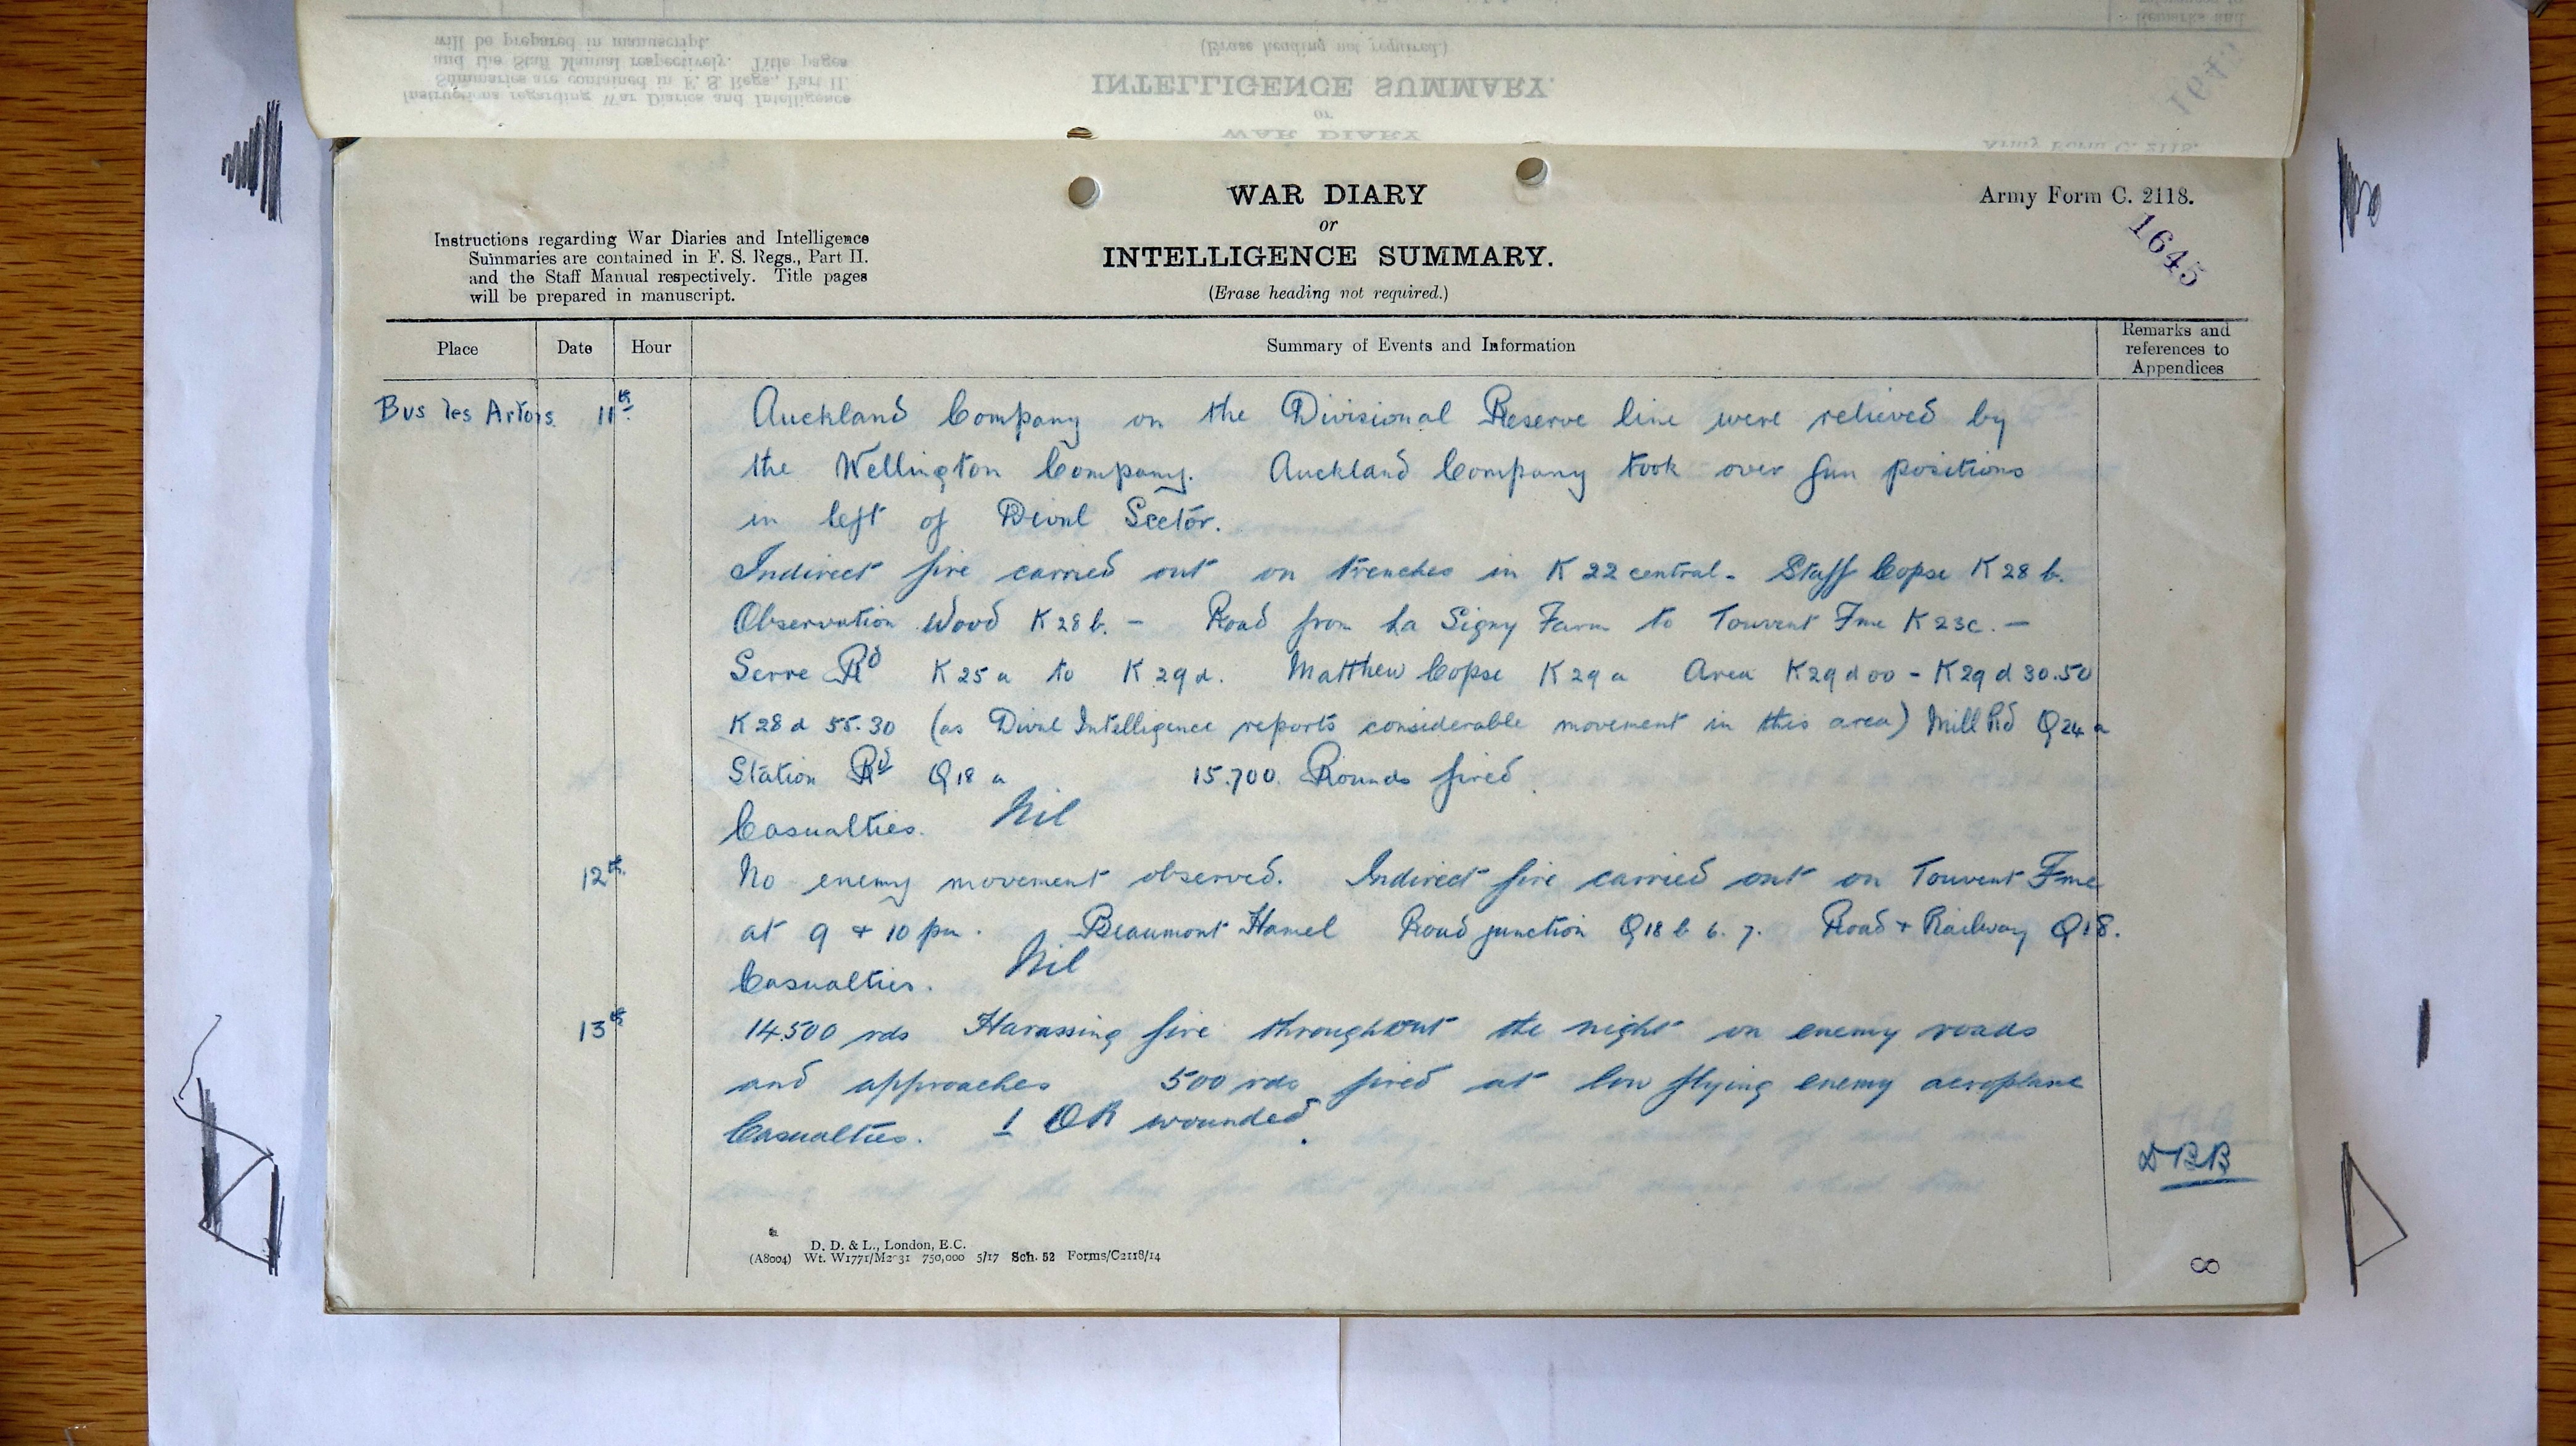 WAR DIARY
or
INTELLIGENCE SUMMARY.
(Erase heading not required.)
Army Form C. 2118.
1645
Instructions regarding War Diaries and Intelligence
Summaries are contained in F. S. Regs., Part II.
and the Staff Manual respectively. Title pages
will be prepared in manuscript.
Place Date Hour Summary of Events and Information Remarks and references to Appendices
Bus les Artois 11th Auckland Company on the Divisional Reserve line were relieved by
the Wellington Company. Auckland Company took over gun positions
in left of Divnl Sector.
Indirect fire carried out on trenches in K 22 central - Staff Copse K 28 b.
Observation Wood K 28 b. - Road from La Signy Farm to Touvent Fme K 23c. -
Serre Rd K 25 a to K 29 d. Matthew Copse K 29 a Area K 29 d 00 - K 29 d 30.50
K 28 d 55.30 (as Divnl Intelligence reports considerable movement in this area) Mill Rd Q 24 a
Station Rd Q 18 a 15.700. Rounds fired.
Casualties. Nil
12th. No enemy movement observed. Indirect fire carried out on Touvent Fme
at 9 + 10 pm. Beaumont Hamel Road junction Q 18 b 6. 7. Road + Railway Q 18.
Casualties. Nil
13th 14.500 rds Harassing fire throughout the night on enemy roads
and approaches 500 rds fired at low flying enemy aeroplane
Casualties. 1 OR wounded.
DBB
D. D. & L., London, E.C.
(A8004) Wt. W1771/M2031 750,000 5/17 Sch. 52 Forms/C2118/14
8